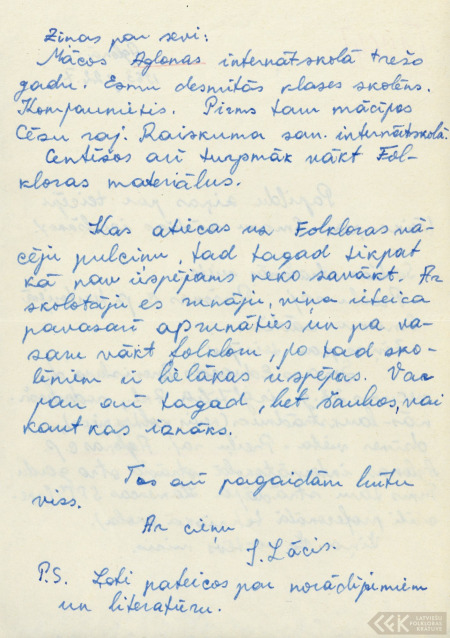 Ziņas par sevi:
Mācos Aglonas internātskolā trešo
gadu. Esmu desmitās klases skolēns.
Komjaunietis. Pirms tam mācījos
Cēsu raj. Raiskuma san. internātskolā.
Centīšos arī turpmāk vākt Fol-
kloras materiālus.
Kas attiecas uz Folkloras vā-
cēju pulciņu, tad tagad tikpat
kā nav iespējams neko savākt. Ar
skolotāju es runāju, viņa ieteica
pavasarī aprunāties un pa va-
saru vākt folkloru, jo tad sko-
lēniem ir lielākas iespējas. Var
jau arī tagad, bet šaubos, vai
kaut kas iznāks.
Tas arī pagaidām būtu
viss.
Ar cieņu
J. Lācis.
P.S. Ļoti pateicos par norādījumiem
un literatūru.
LATVIEŠU
FOLKLORAS
KRĀTUVE